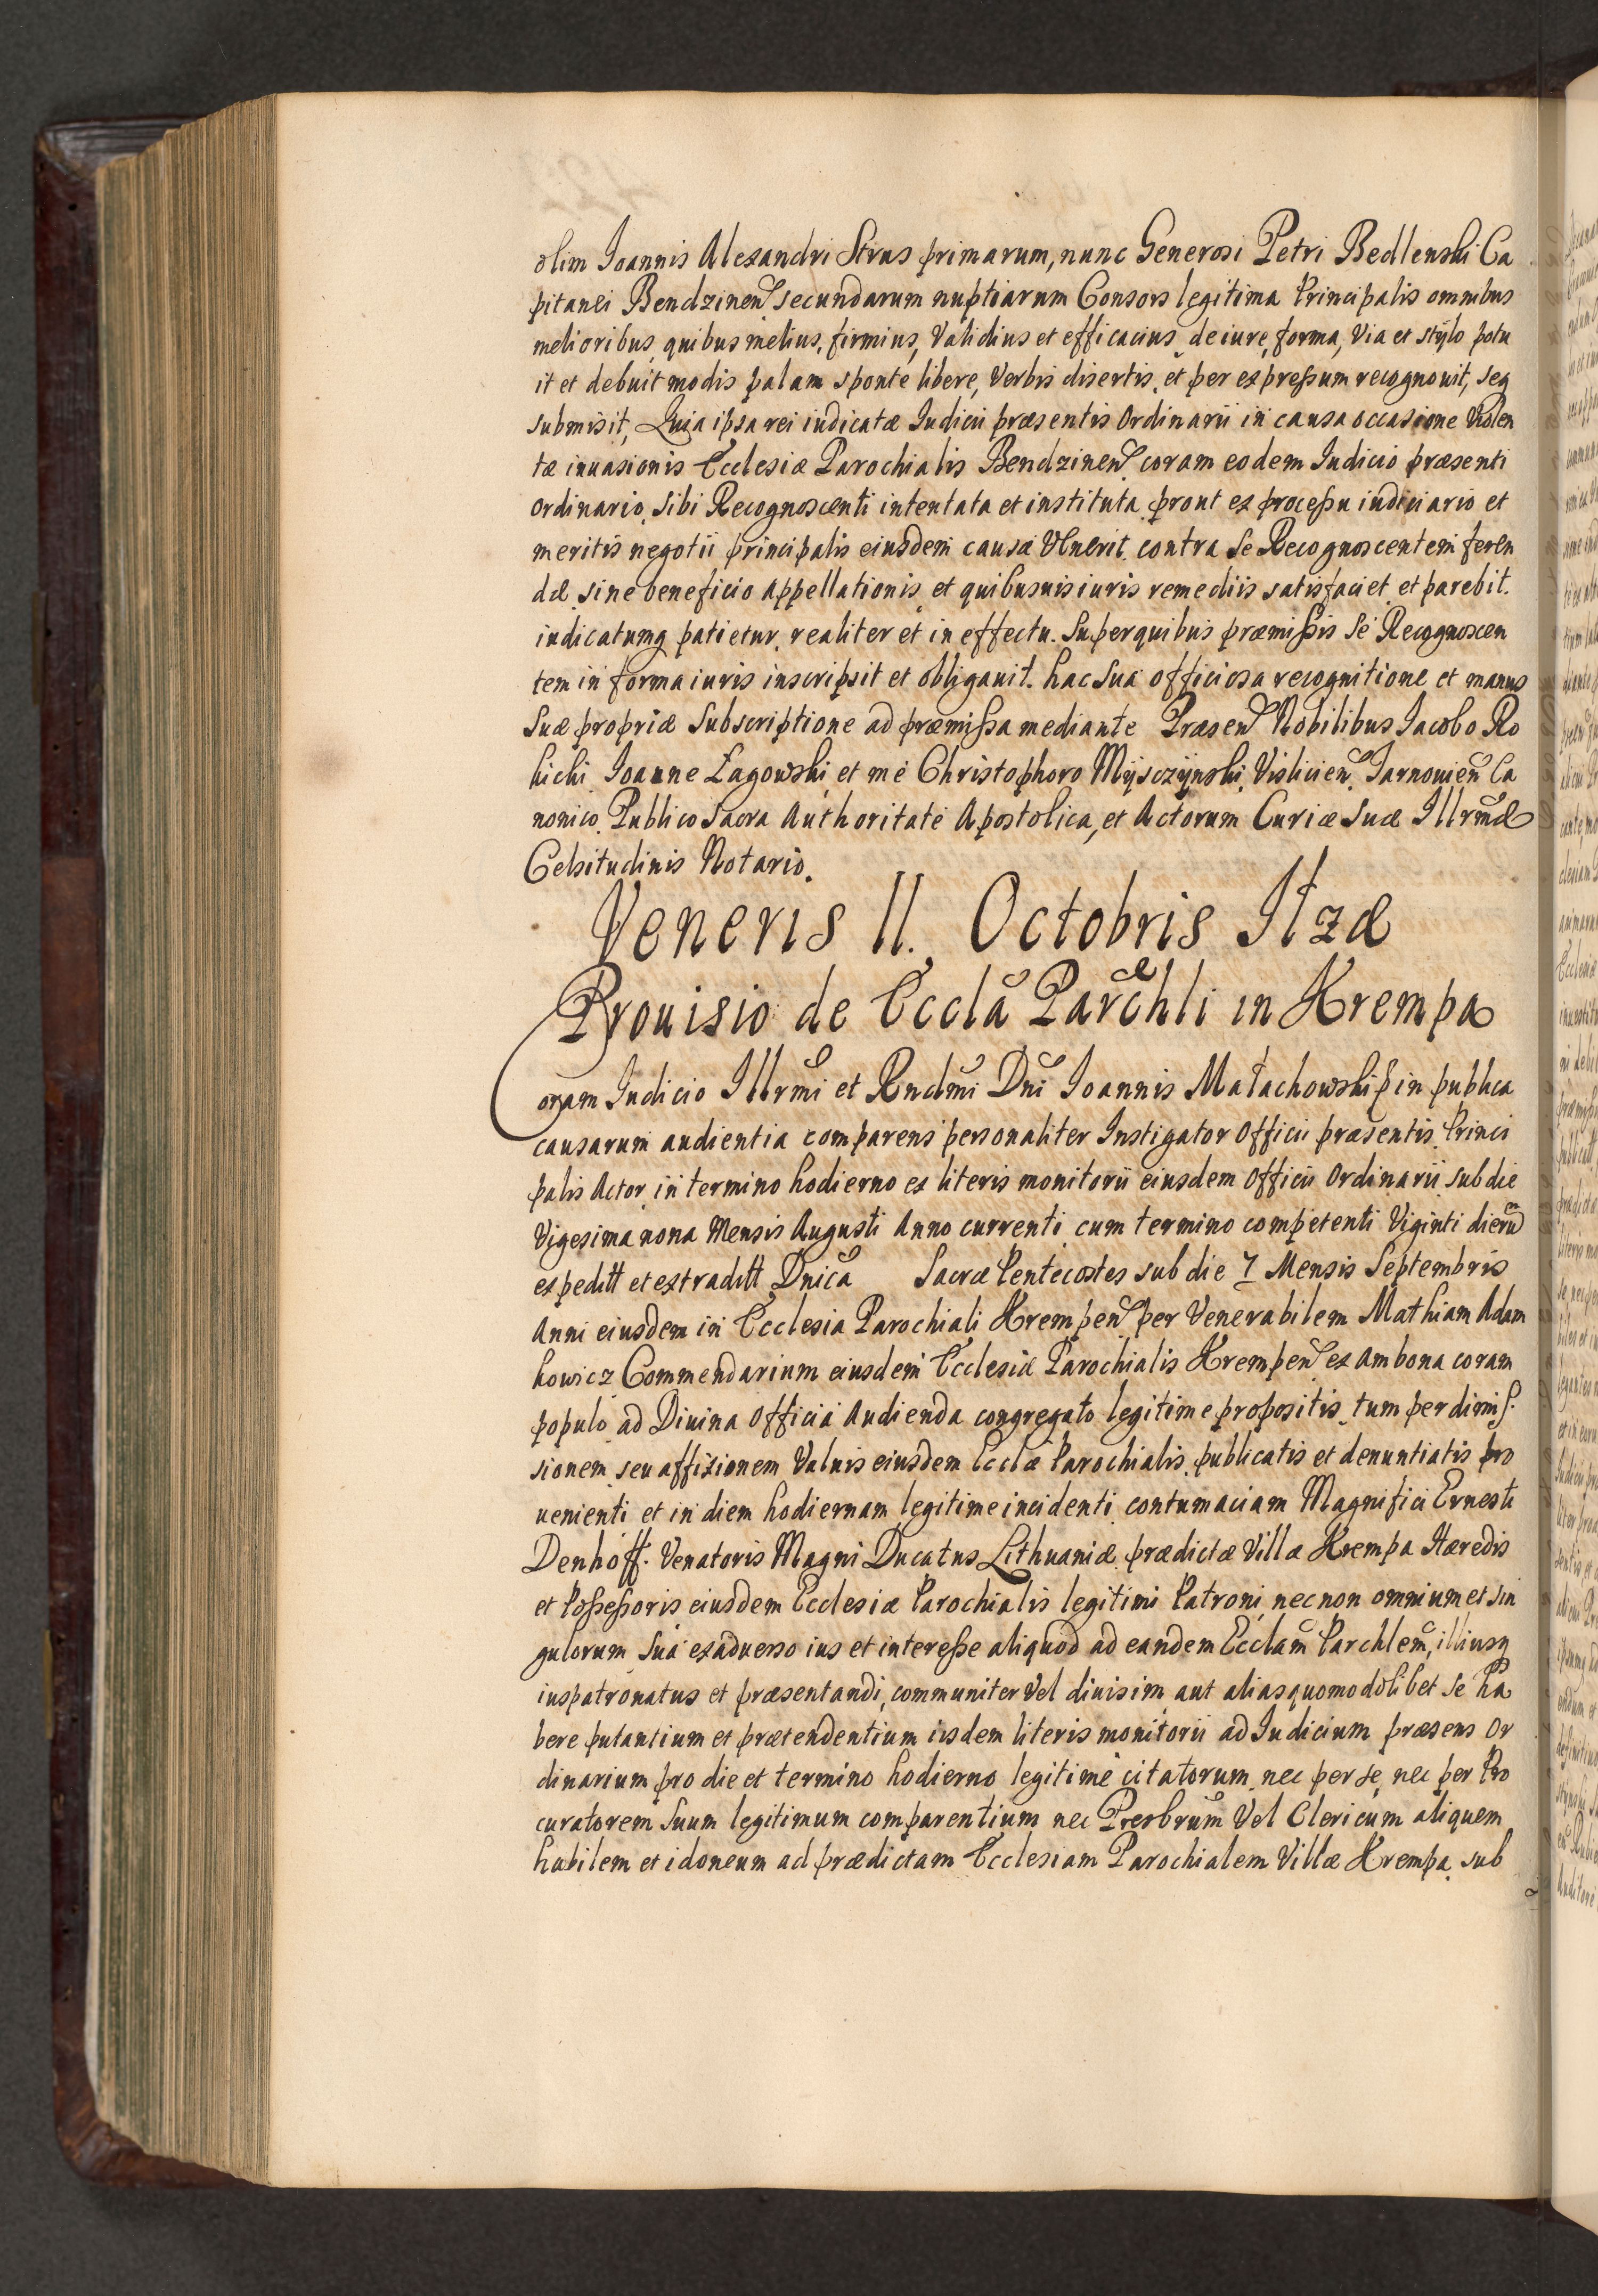 olim Joannis Alexandri Strus primarum, nunc Generosi Petri Bedlenski Ca
pitanei Bendzinen secundarum nuptiarum Consors legitima Principalis omnibus
melioribus quibus melius, firmius, Validius et efficacius de iure, forma, Via et stylo potu
it et debuit modis palam sponte libere, Verbis disertis, et per expressum recognouit, seq
submisit, Quia ipsa rei iudicatæ Iudicii præsentis Ordinarii in causa occasione Violen
tæ inuasionis Ecclesiæ Parochialis Bendzinen coram eodem Iudicio præsenti
ordinario, sibi Recognoscenti intentata et instituta prout ex processu iudiciario et
meritis negotii principalis eiusdem causæ Venerit contra se Recognoscentem feren
dæ sine beneficio appellationis et quibusuis iuris remediis satisfaciet et parebit.
iudicatumq patietur realiter et in effectu. Superquibus præmissis se Recognoscen
tem in forma iuris inscripsit et obligauit. hac sua officiosa recognitione et manus
suæ propriæ subscriptione ad præmissa mediante Præsen Nobilibus Iacobo Ro
kicki Joanne Łagowski et me Christophoro Myszczynski, Vislicien Tarnouien Ca
nonico, Publico Sacra Authoritate Apostolica, et Actorum Curiæ Suæ Illrmæ
Celsitudinis Notario.
Veneris 11. Octobris Ilzæ
Prouisio de Eccla Parchli in Krempa
Coram Iudicio Illrmi et Rndmi Dni Joannis Małachowski p in publica
causarum audientia comparens personaliter Instigator Officii præsentis Princi
palis Actor in termino hodierno ex literis monitorii eiusdem Officii Ordinarii sub die
Vigesima nona Mensis Augusti Anno currenti cum termino competenti Viginti dierum
expeditt et extraditt Dnica Sacræ Pentecostes sub die 7 Mensis Septembris
Anni eiusdem in Ecclesia Parochiali Krempen per Venerabilem Mathiam Adam
kowicz Commendarium eiusdem Ecclesiæ Parochialis Krempen ex Ambona coram
populo ad Diuina Officia Audienda congregato legitime propositis tum per dimis
sionem seu affixionem Valuis eiusdem Ecclæ Parochialis publicatis et denuntiatis pro
uenienti et in diem hodiernam legitime incidenti contumaciam Magnifici Ernesti
Denhoff. Venatoris Magni Ducatus Lithuaniæ prædictæ Villæ Krempa Hæredis
et Possessoris eiusdem Ecclesiæ Parochialis legitimi Patroni nec non omnium et sin
gulorum sua exaduerso ius et interesse aliquod ad eandem Ecclam Parchlem, illiusq
iuspatronatus et præsentandi, communiter Vel diuisim, aut alias quomodolibet se ha
bere putantium et prætendentium iisdem literis monitorii ad Iudicium præsens Or
dinarium pro die et termino hodierno legitime citatorum, nec per se, nec per Pro
curatorem Suum legitimum comparentium nec Presbrum Vel Clericum aliquem
habilem et idoneum ad prædictam Ecclesiam Parochialem Villæ Krempa sub